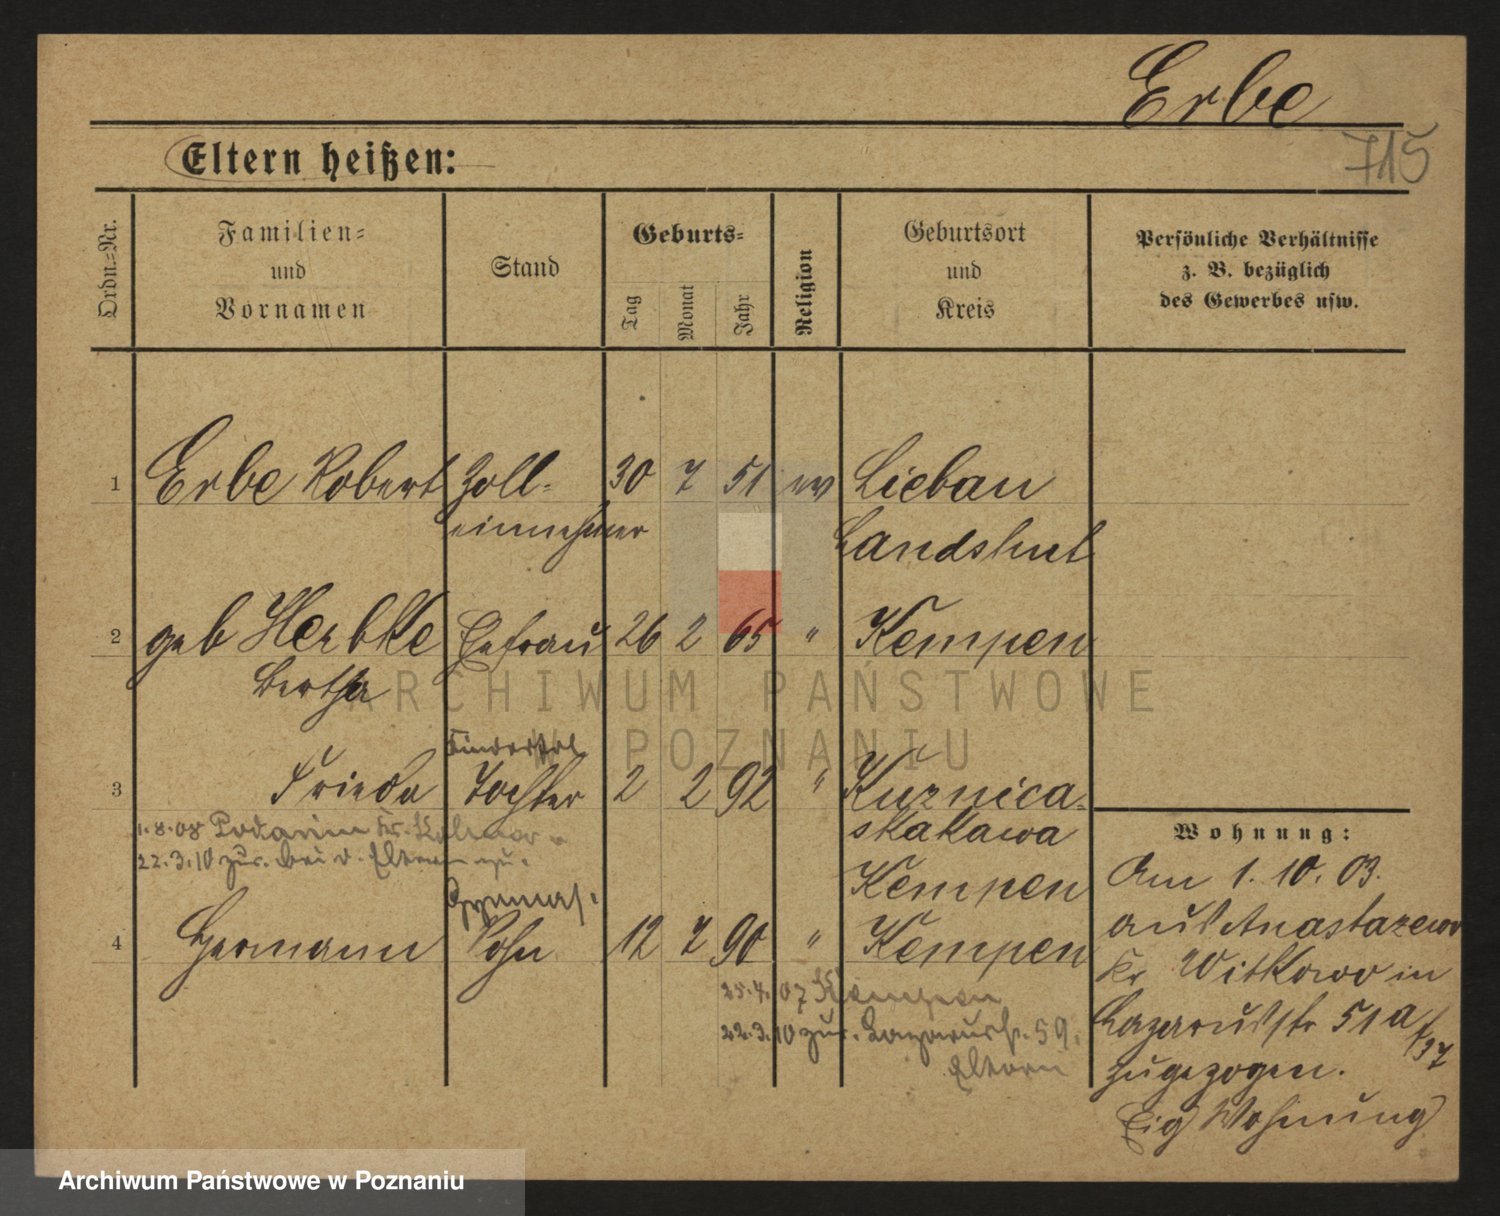 Erbe
715
Eltern heißen:
Ordn.=Nr.
Familien=
und
Vornamen
Stand
Geburts=
Tag
Monat
Jahr
Religion
Geburtsort
und
Kreis
Persönliche Verhältnisse
z. B. bezüglich
des Gewerbes usw.
1 Erbe Robert Zoll= 30 7 51 ev Liebau
einnehmer Landshut
2 geb Herbke Ehefrau 26 2 65 " Kempen
Bertha
3 Frieda Tochter 2 2 92 " Kuznica=
skakawa
Kempen
1.8.08 Podanin Kr. Kolmar
22.3.10 zur. bei d. Eltern
Gymnas.
4 Hermann Sohn 12 7 90 " Kempen
25.4.07 Kempen
22.3.10 zur. Lazarusstr. 59.
Eltern
Wohnung:
Am 1. 10. 03.
aus Anastazewo
Kr Witkowo in
Lazarusstr 51a
zugezogen.
Eig Wohnung
ARCHIWUM PAŃSTWOWE
W POZNANIU
Archiwum Państwowe w Poznaniu